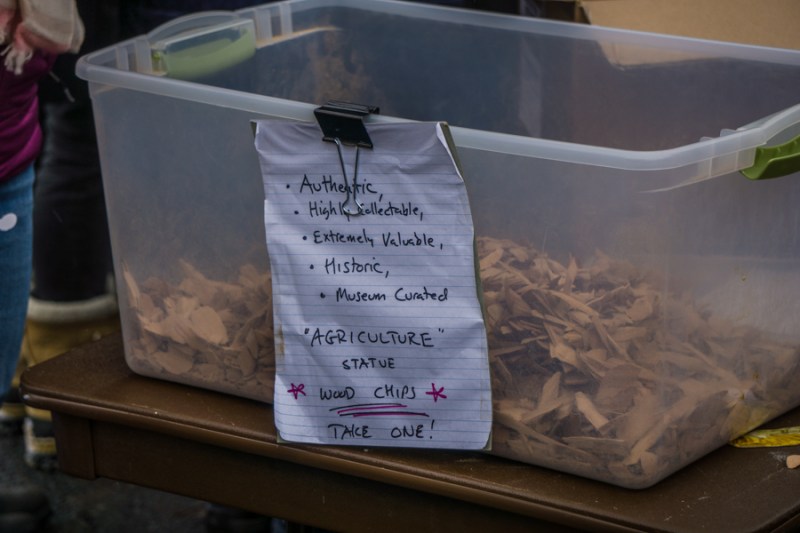 • Authentic,
• Highly Collectable,
• Extremely Valuable,
• Historic,
• Museum Curated
"AGRICULTURE"
STATUE
* WOOD CHIPS *
TAKE ONE!